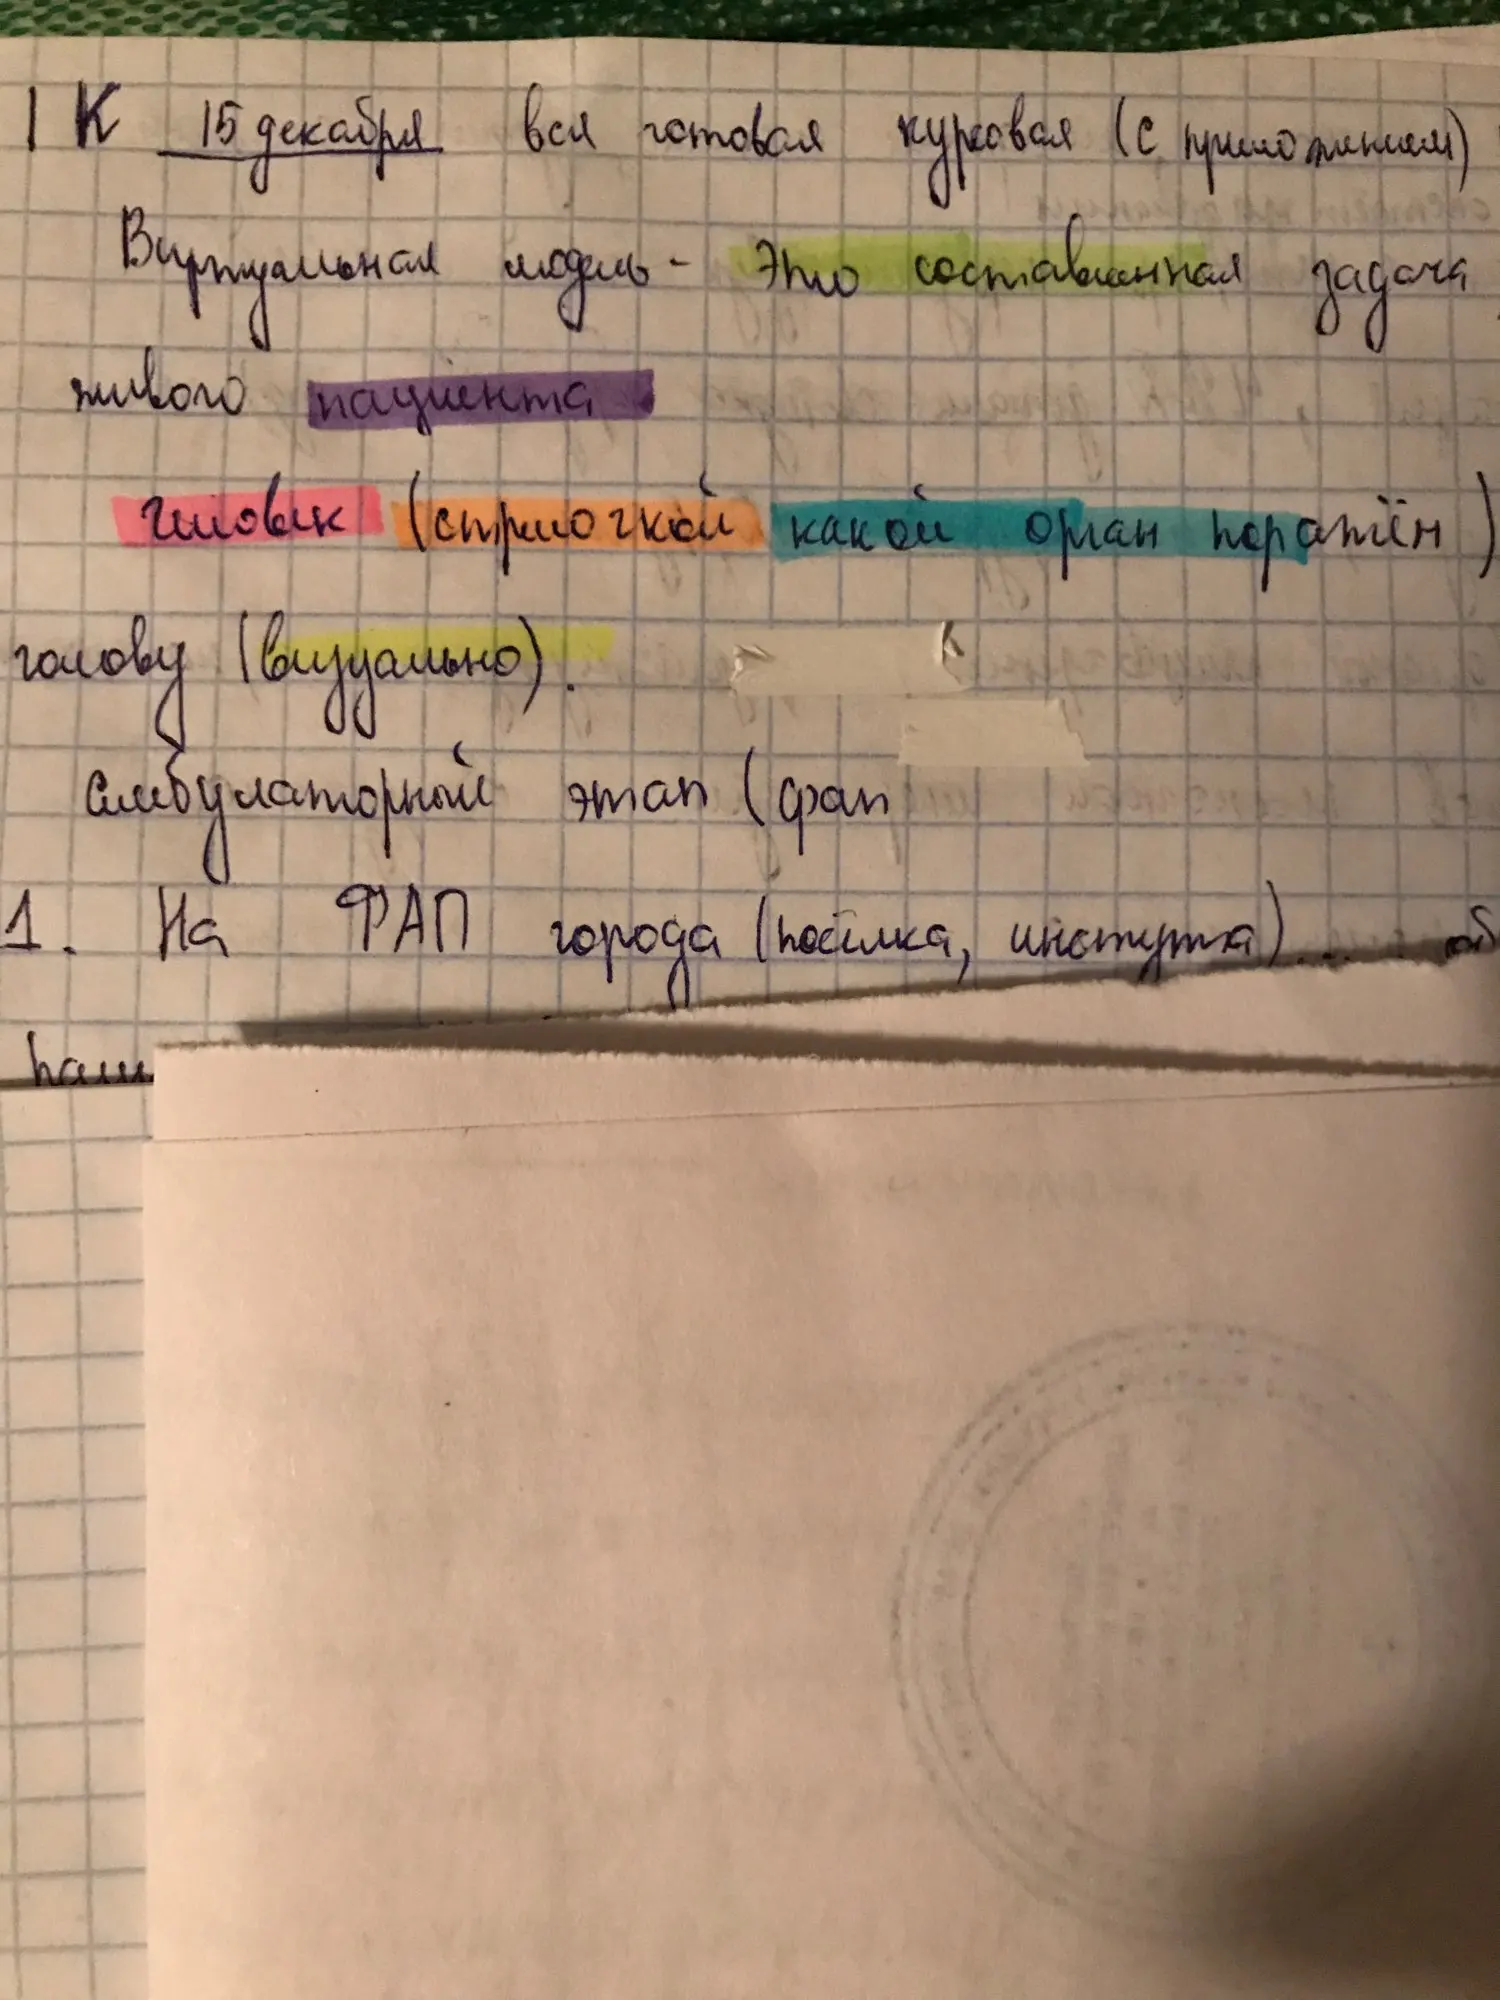 К 15 декабря вся готовая курсовая (с приложением)
Виртуальная модель - это составленная задача
живого пациента
человек (стрелочкой какой орган поражён)
голову (визуально).
амбулаторный этап (фап
1. На ФАП города (посёлка,